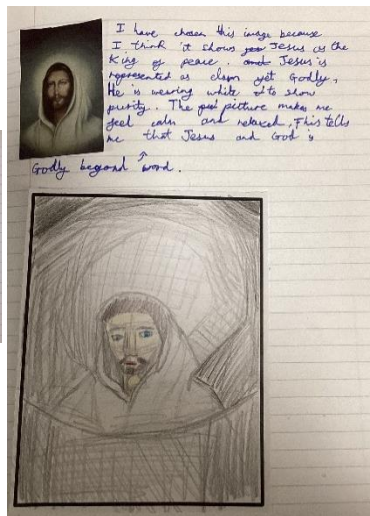 I have chosen this image because
I think it shows Jesus as the
King of peace. Jesus is
represented as clam yet Godly,
He is wearing white to show
purity. The picture makes me
feel calm and relaxed, This tells
me that Jesus and God is
Godly beyond word.